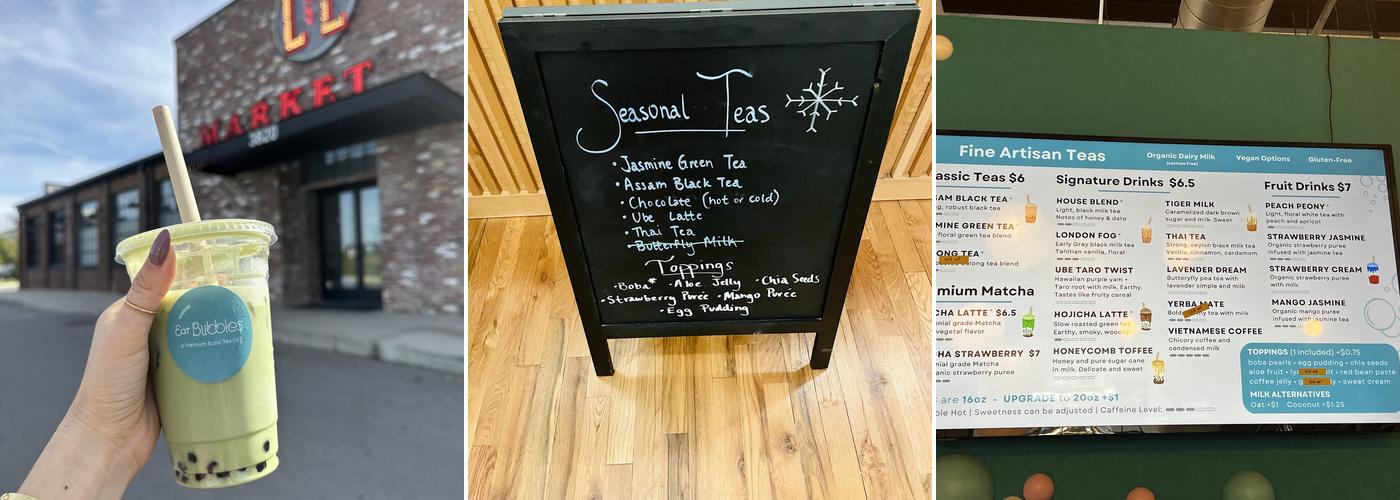 MARKET
3820
Eat Bubbles
a Premium Boba Tea Co.
Seasonal Teas
• Jasmine Green Tea
• Assam Black Tea
• Chocolate (hot or cold)
• Ube Latte
• Thai Tea
Butterfly Milk
Toppings
• Boba* • Aloe Jelly • Chia Seeds
• Strawberry Puree • Mango Puree
• Egg Pudding
Fine Artisan Teas
Organic Dairy Milk
(Lactose Free)
Vegan Options
Gluten-Free
assic Teas $6
SAM BLACK TEA*
g, robust black tea
MINE GREEN TEA*
floral green tea blend
ONG TEA*
oolong tea blend
mium Matcha
CHA LATTE* $6.5
nial grade Matcha
vegetal flavor
CHA STRAWBERRY $7
nial grade Matcha
anic strawberry puree
Signature Drinks $6.5
HOUSE BLEND*
Light, black milk tea
Notes of honey & date
LONDON FOG*
Early Gray black milk tea
Tahitian vanilla, floral
UBE TARO TWIST
Hawaiian purple yam +
Taro root with milk. Earthy.
Tastes like fruity cereal
HOJICHA LATTE*
Slow roasted green tea
Earthy, smoky, woody
HONEYCOMB TOFFEE
Honey and pure sugar cane
in milk. Delicate and sweet
TIGER MILK
Caramelized dark brown
sugar and milk. Sweet
THAI TEA
Strong, ceylon black milk tea
Vanilla, cinnamon, cardamom
LAVENDER DREAM
Butterflypea tea with
lavender simple and milk
YERBA MATE
Bold, earthy tea with milk
VIETNAMESE COFFEE
Chicory coffee and
condensed milk
Fruit Drinks $7
PEACH PEONY*
Light, floral white tea with
peach and apricot
STRAWBERRY JASMINE
Organic strawberry puree
infused with jasmine tea
STRAWBERRY CREAM
Organic strawberry puree
with milk
MANGO JASMINE
Organic mango puree
infused with jasmine tea
TOPPINGS (1 included) +$0.75
boba pearls • egg pudding • chia seeds
aloe fruit • ly it • red bean paste
coffee jelly • g y • sweet cream
MILK ALTERNATIVES
Oat +$1 Coconut +$1.25
are 16oz - UPGRADE to 20oz +$1
ble Hot | Sweetness can be adjusted | Caffeine Level: